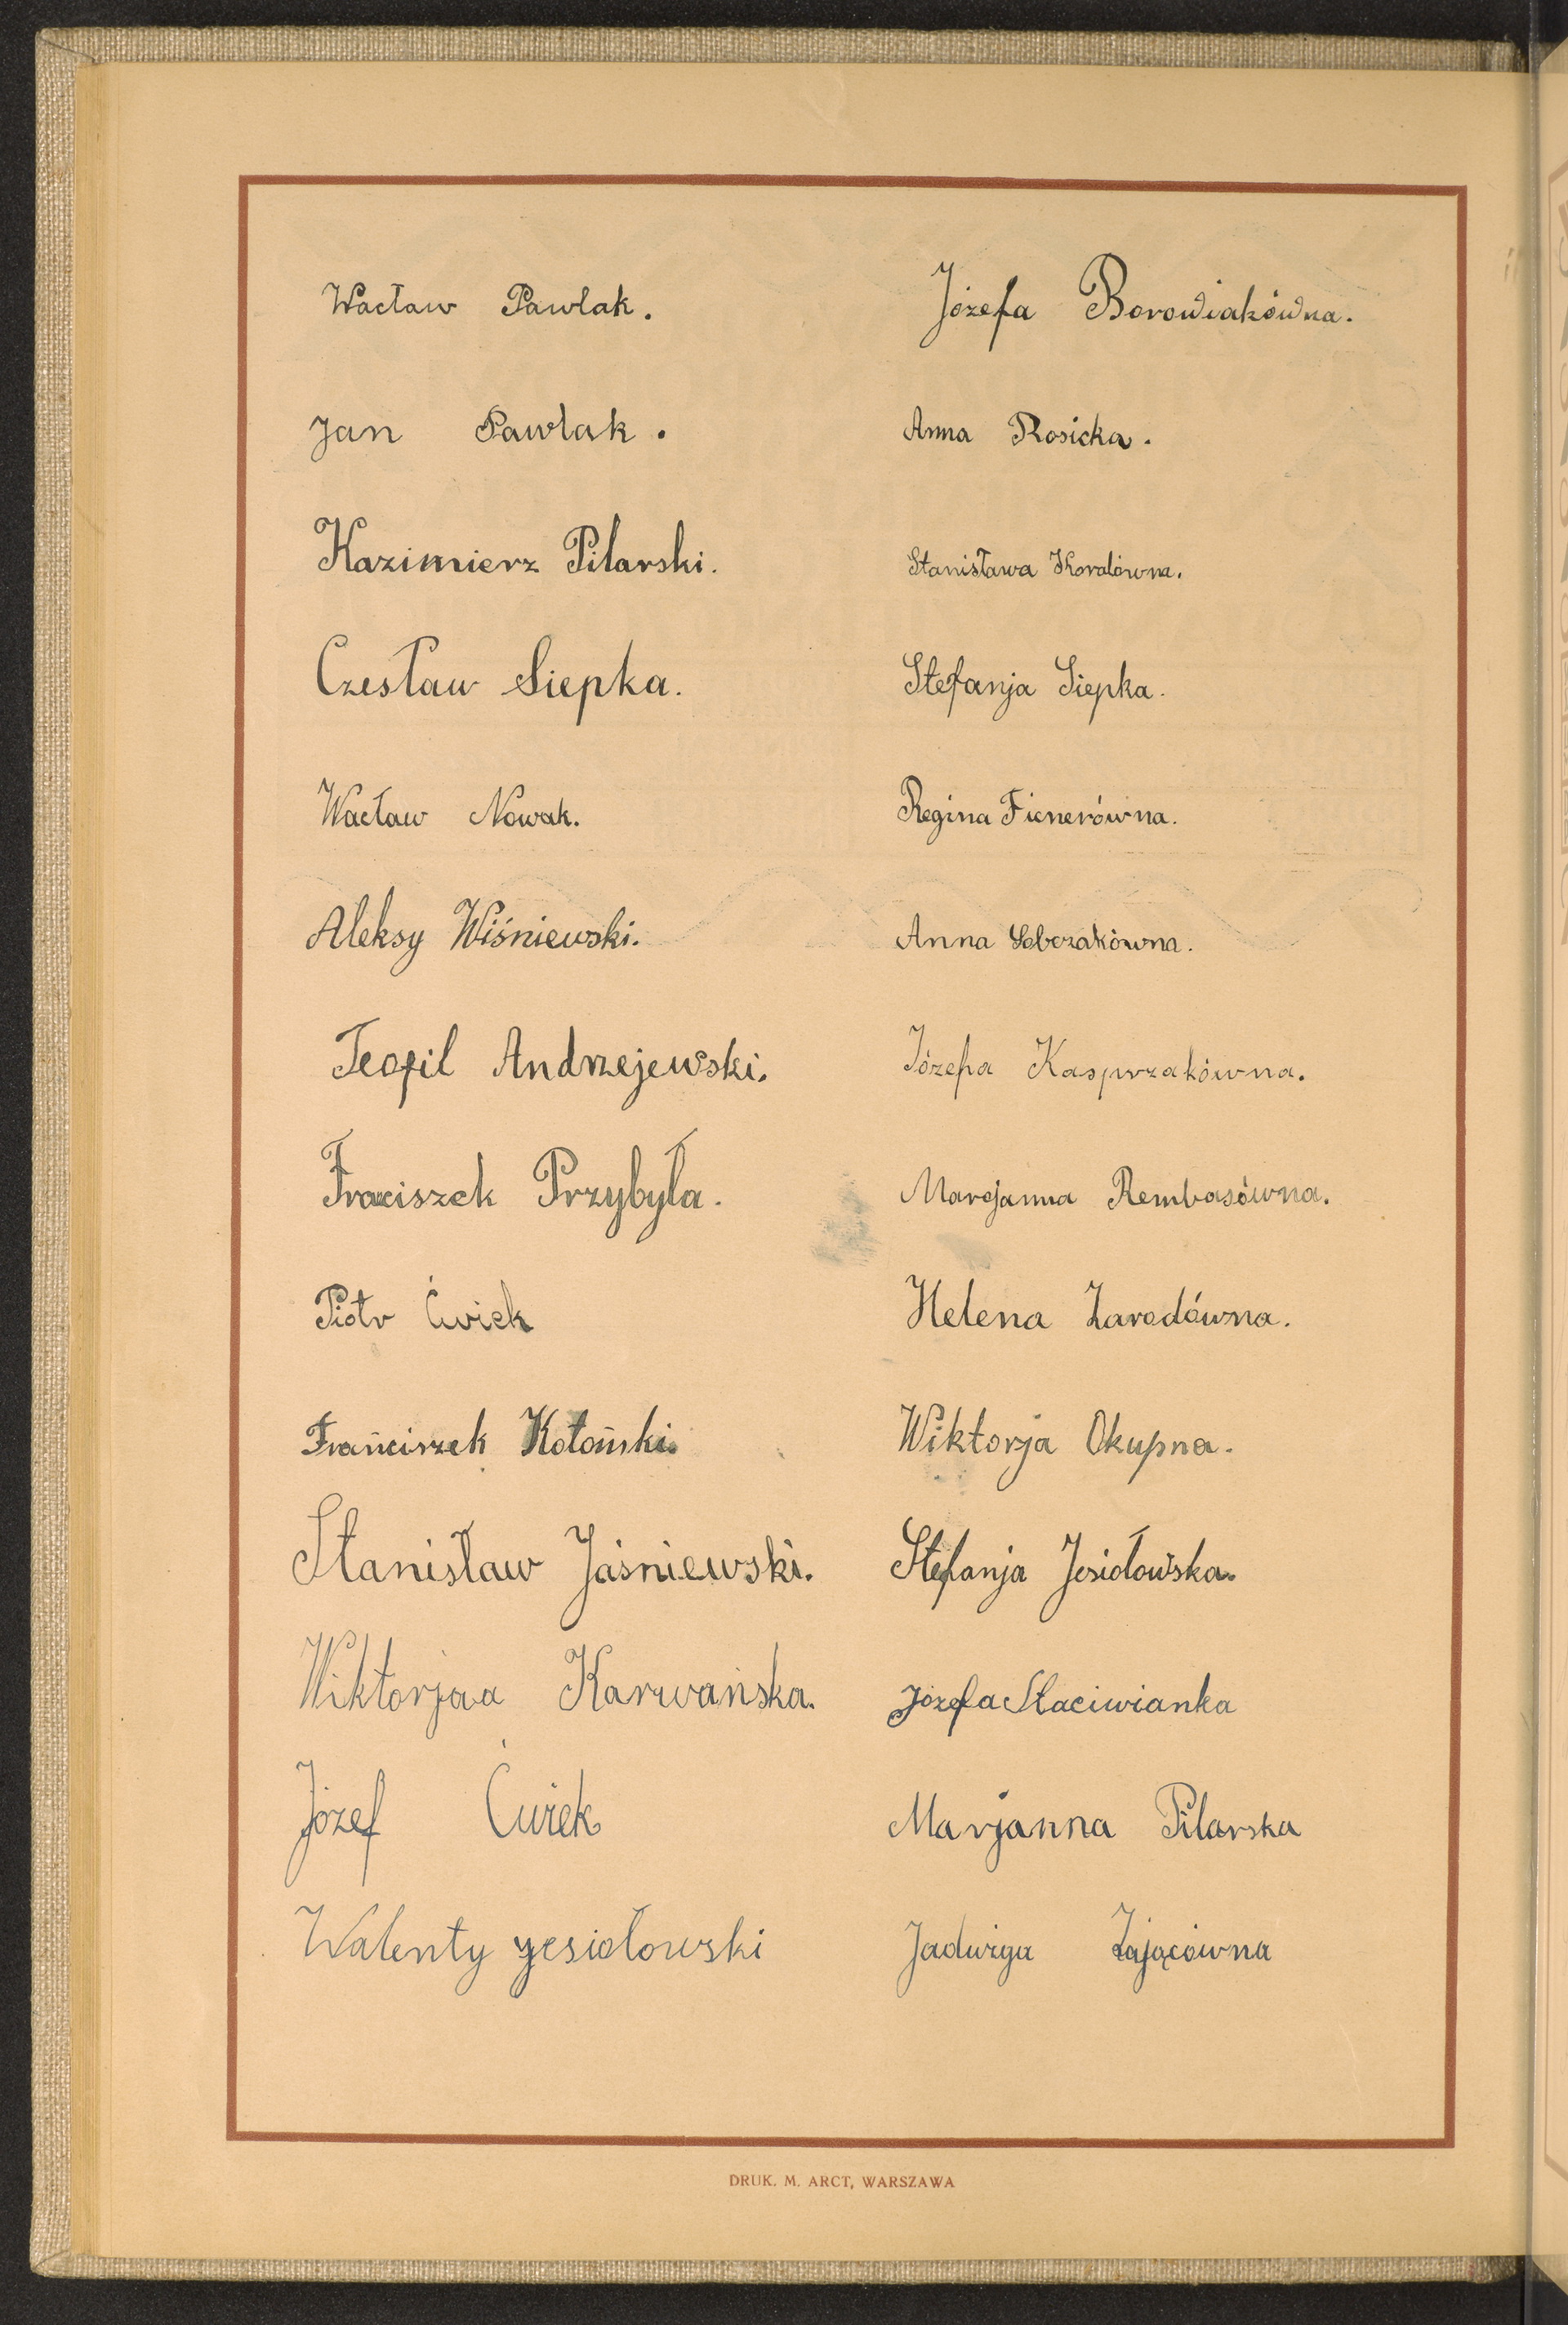 Wacław Pawlak.
Jan Pawlak.
Kazimierz Pilarski.
Czesław Siepka.
Wacław Nowak.
Aleksy Wiśniewski.
Teofil Andrzejewski.
Franciszek Przybyła.
Piotr Ćwiek
Franciszek Kotoński.
Stanisław Jaśniewski.
Wiktorjaa Karwańska.
Józef Ćwiek
Walenty Jesiołowski
Józefa Borowiakówna.
Anna Rosicka.
Stanisława Koralówna.
Stefanja Siepka.
Regina Ficnerówna.
Anna Sobczakówna.
Józefa Kasprzakówna.
Marjanna Rembasówna.
Helena Zarodówna.
Wiktorja Okupna.
Stefanja Jesiołowska.
Józefa Staciwianka
Marjanna Pilarska
Jadwiga Zającówna
DRUK. M. ARCT, WARSZAWA